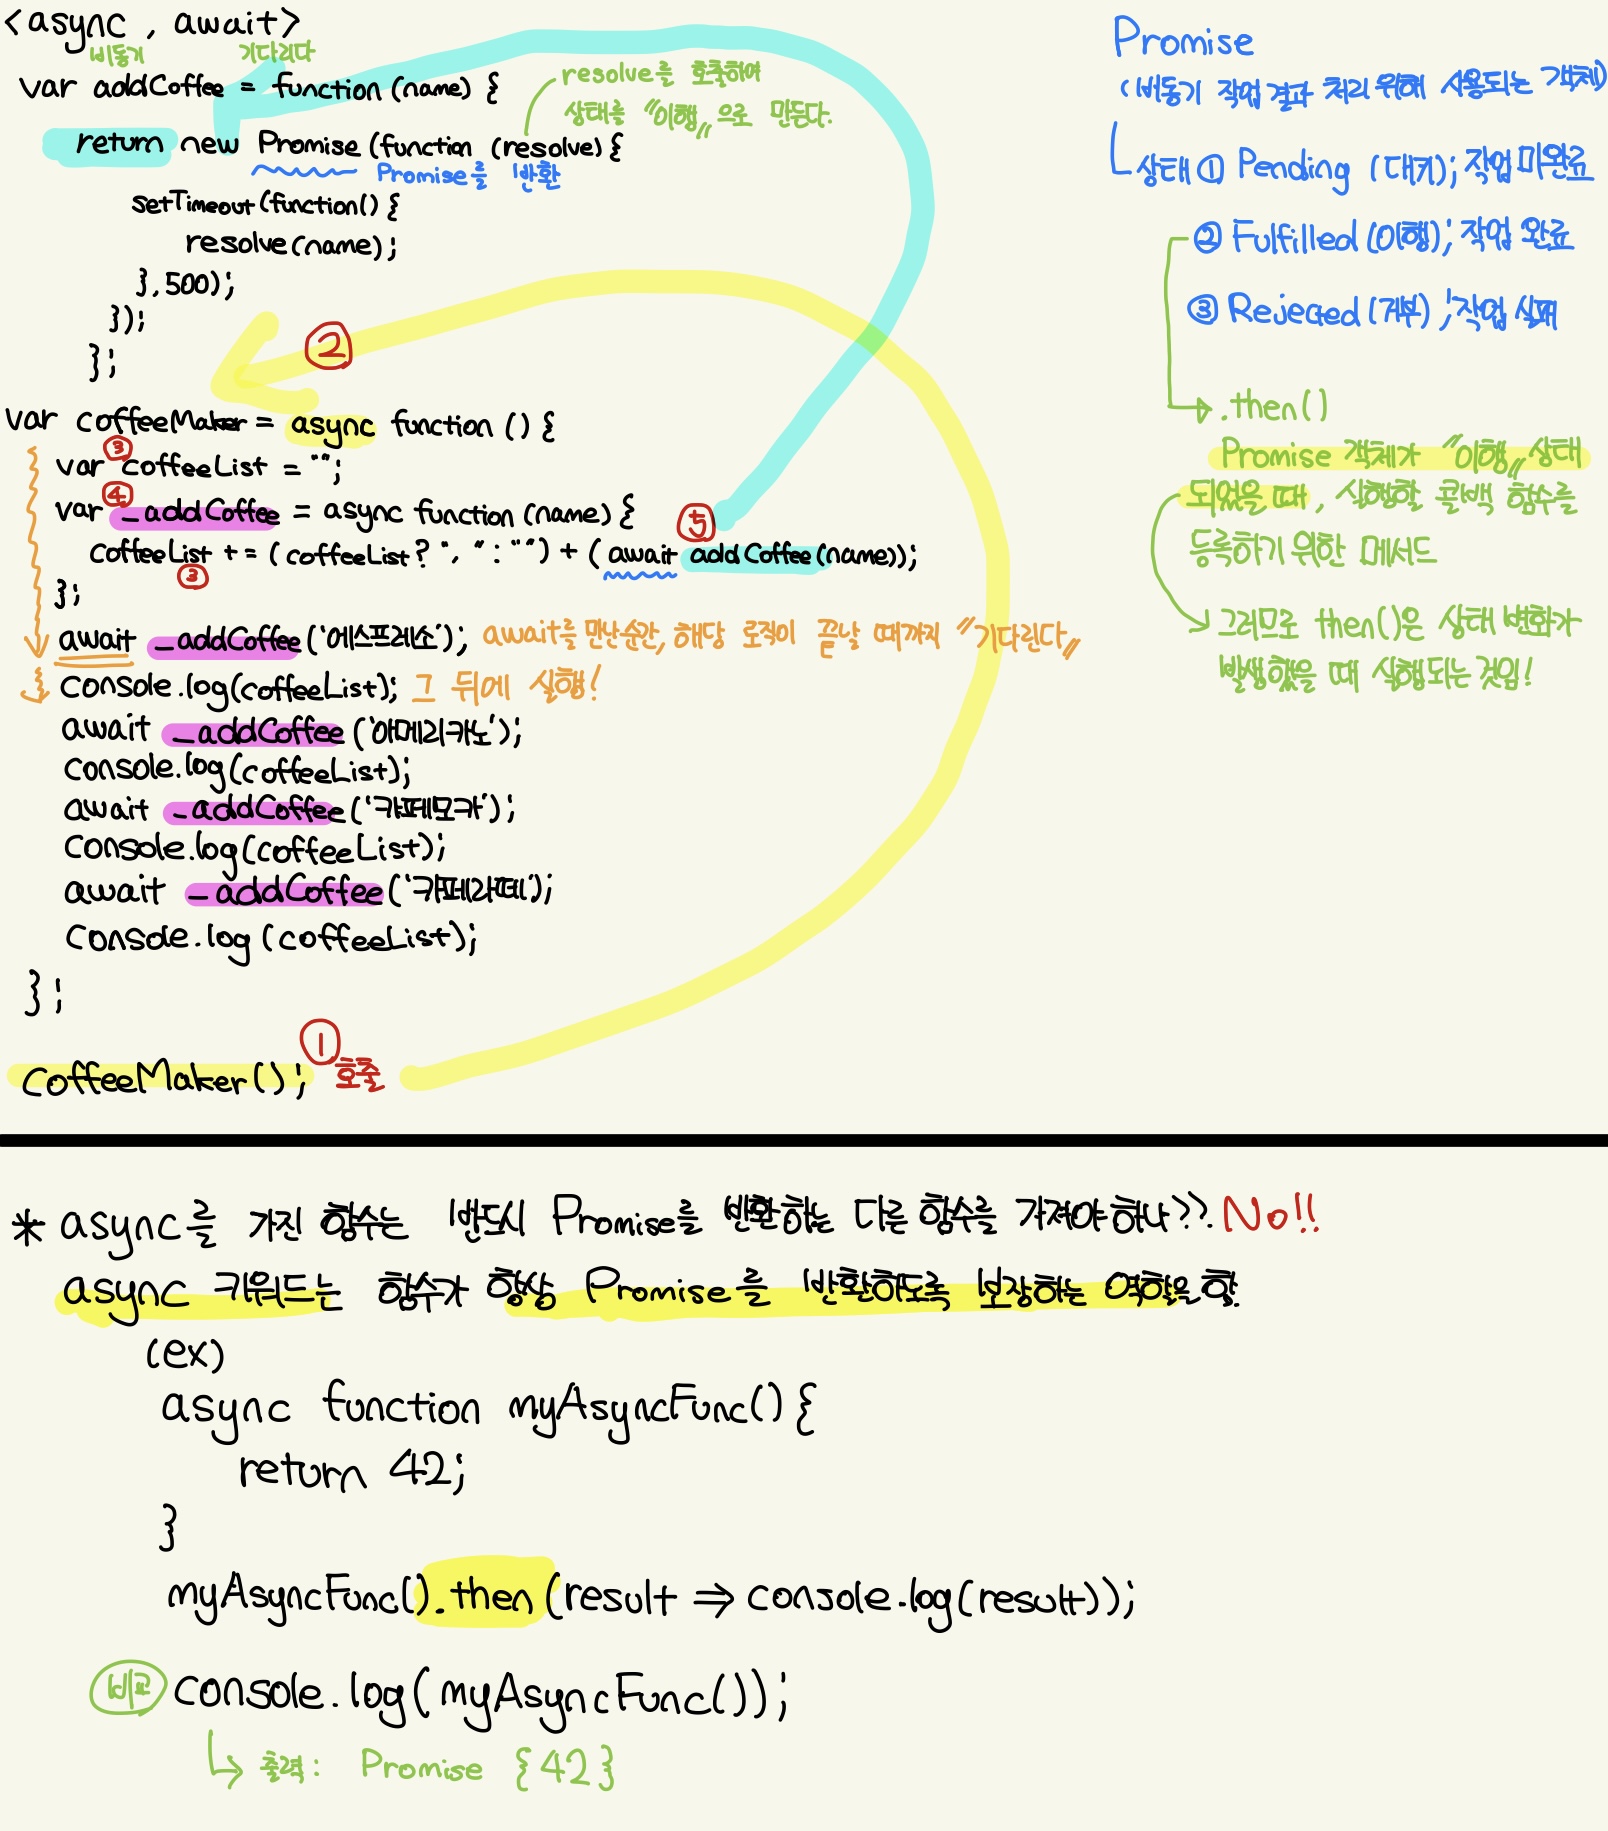 <async , await>
비동기 기다리다
var addCoffee = function (name) {
resolve를 호출하여
상태를 "이행" 으로 만든다.
return new Promise (function (resolve) {
Promise를 반환
setTimeout (function() {
resolve(name);
}, 500);
});
};
②
var coffeeMaker = async function () {
③
var coffeeList = "";
④
var _addCoffee = async function (name) {
⑤
coffeeList += ( coffeeList ? ", " : "") + ( await addCoffee(name));
③
};
await _addCoffee ('에스프레소'); await를 만난순간, 해당 로직이 끝날 때까지 "기다린다"
console.log(coffeeList); 그 뒤에 실행!
await _addCoffee ('아메리카노');
console.log(coffeeList);
await _addCoffee ('카페모카');
console.log(coffeeList);
await _addCoffee ('카페라떼');
console.log (coffeeList);
};
coffeeMaker(); ① 호출
Promise
(비동기 작업 결과 처리 위해 사용되는 객체)
상태 ① Pending (대기); 작업 미완료
② Fulfilled (이행); 작업 완료
③ Rejected (거부) ; 작업 실패
.then()
Promise 객체가 "이행" 상태
되었을 때, 실행할 콜백 함수를
등록하기 위한 메서드
그러므로 then()은 상태 변화가
발생했을 때 실행되는 것임!
* async를 가진 함수는 반드시 Promise를 반환하는 다른 함수를 가져야 하나??. No!!
async 키워드는 함수가 항상 Promise를 반환하도록 보장하는 역할을 함.
(ex)
async function myAsyncFunc() {
return 42;
}
myAsyncFunc().then (result ⇒ console.log(result));
비교 console.log(myAsyncFunc());
출력: Promise {42}